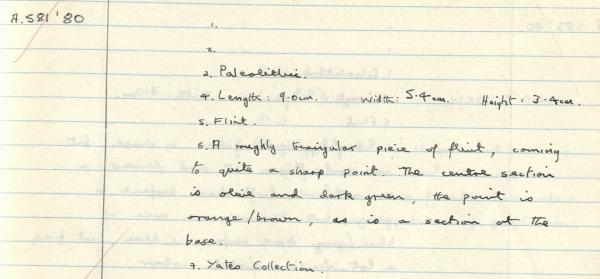 A.581 '80
1.
2.
3. Paleolithic.
4. Length: 9.0cm. Width: 5.4cm. Height: 3.4cm.
5. Flint.
6. A roughly triangular piece of flint, coming
to quite a sharp point. The centre section
is olive and dark green, the point is
orange/brown, as is a section at the
base.
7. Yates Collection.